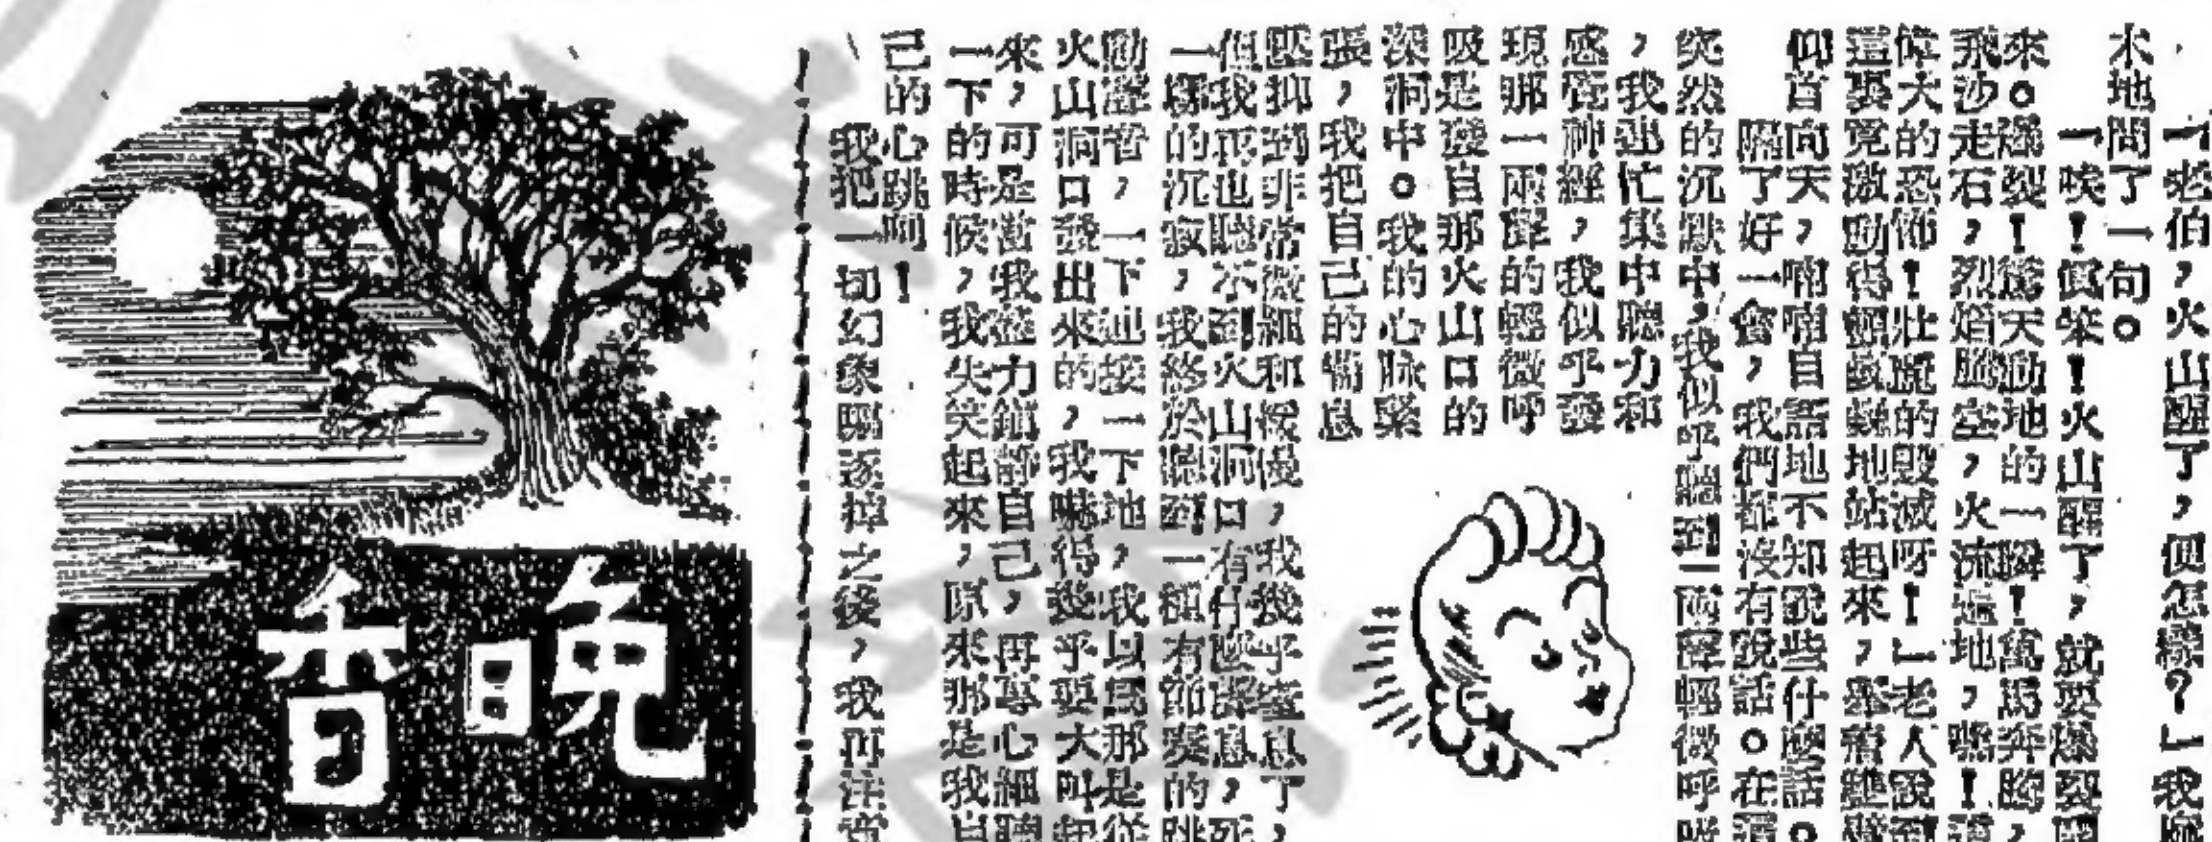 「老伯,火山醒了,便怎樣?」我
木地問了一句。
「唉!真笨!火山醒了,就要爆裂
來。爆裂!驚天動地的一瞬!萬馬奔騰,
飛沙走石,烈焰騰空,火流遍地,嘿!
偉大的恐怖!壯麗的毀滅呀!」老人說到
這裏竟激動得顫巍巍地站起來,舉着雙臂
仰首向天,喃喃自語地不知說些什麼話。
隔了好一會,我們都沒有說話。在這
突然的沉默中,我似乎聽到一兩聲輕微呼
,我連忙集中聽力和
感覺神經,我似乎發
現那一兩聲的輕微呼
吸是發自那火山口的
深洞中。我的心脉緊
張,我把自己的喘息
壓抑到非常微細和緩慢,我幾乎窒息了,
但我再也聽不到火山洞口有什麼聲息,死
一樣的沉寂,我終於聽到一種有節奏的跳
動聲音,一下連接一下地,我以爲那是從
火山洞口發出來的,我嚇得幾乎要大叫起
來,可是當我盡力鎮靜自己,再專心細聽
一下的時候,我失笑起來,原來那是我自
己的心跳呵!
我把一切幻象驅逐掉之後,我再注
晚香